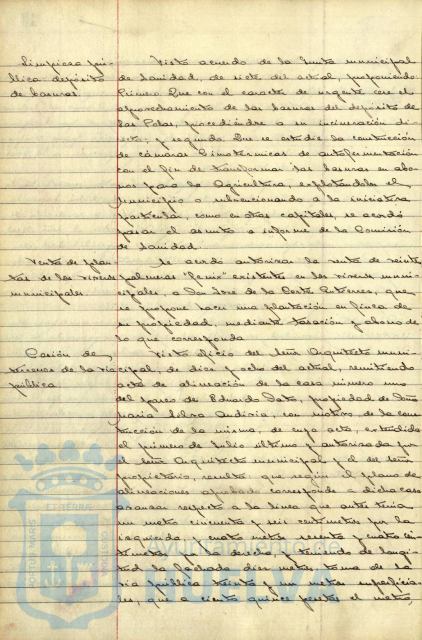 Limpieza pú-
blica depósito
de basuras.
Visto acuerdo de la Junta municipal
de Sanidad, de siete del actual, proponiendo:
Primero Que con el caracter de urgente cese el
aprovechamiento de las basuras del depósito de
las Potas, procediéndose a su incineración di-
recta; y segundo. Que se estudie la construcción
de cámaras Zimotérmicas de autofermentación
con el fin de transformar las basuras en abo-
nos para la Agricultura, explotándolas el
Municipio o subvencionando a la iniciativa
particular, como en otras capitales, se acordó
pasar el asunto a informe de la Comisión
de Sanidad.
Venta de plan-
tas de los viveros
municipales.
Se acordó autorizar la venta de veinte
palmeras "fenix" existentes en los viveros muni-
cipales, a Don Jose de la Corte Gutierrez, que
se propone hacer una plantación en finca de
su propiedad, mediante tasación y abono de
lo que corresponda
Cesión de
terrenos de la vía
pública
Visto oficio del Señor Arquitecto muni-
cipal, de diez y ocho del actual, remitiendo
acta de alineación de la casa número uno
del paseo de Eduardo Dato, propiedad de Doña
Maria, con motivo de la cons-
trucción de la misma, de cuya acta, extendida
el primero de Julio último y autorizada por
el Señor Arquitecto municipal y el del Señor
propietario, resulta que según el plano de
alineaciones aprobado corresponde a dicha casa
avanzar respecto a la línea que antes tenía
un metro cincuenta y seis centímetros por la
izquierda y cuatro metros y cuatro cen-
tímetros por la derecha y teniendo de longi-
tud la fachada diez metros, toma de la
vía pública treinta y un metros superficia-
les, que a ciento quince pesetas el metro,
Ayuntamiento de
PORTUS MARIS
ET TERRAE
CUSTODIA